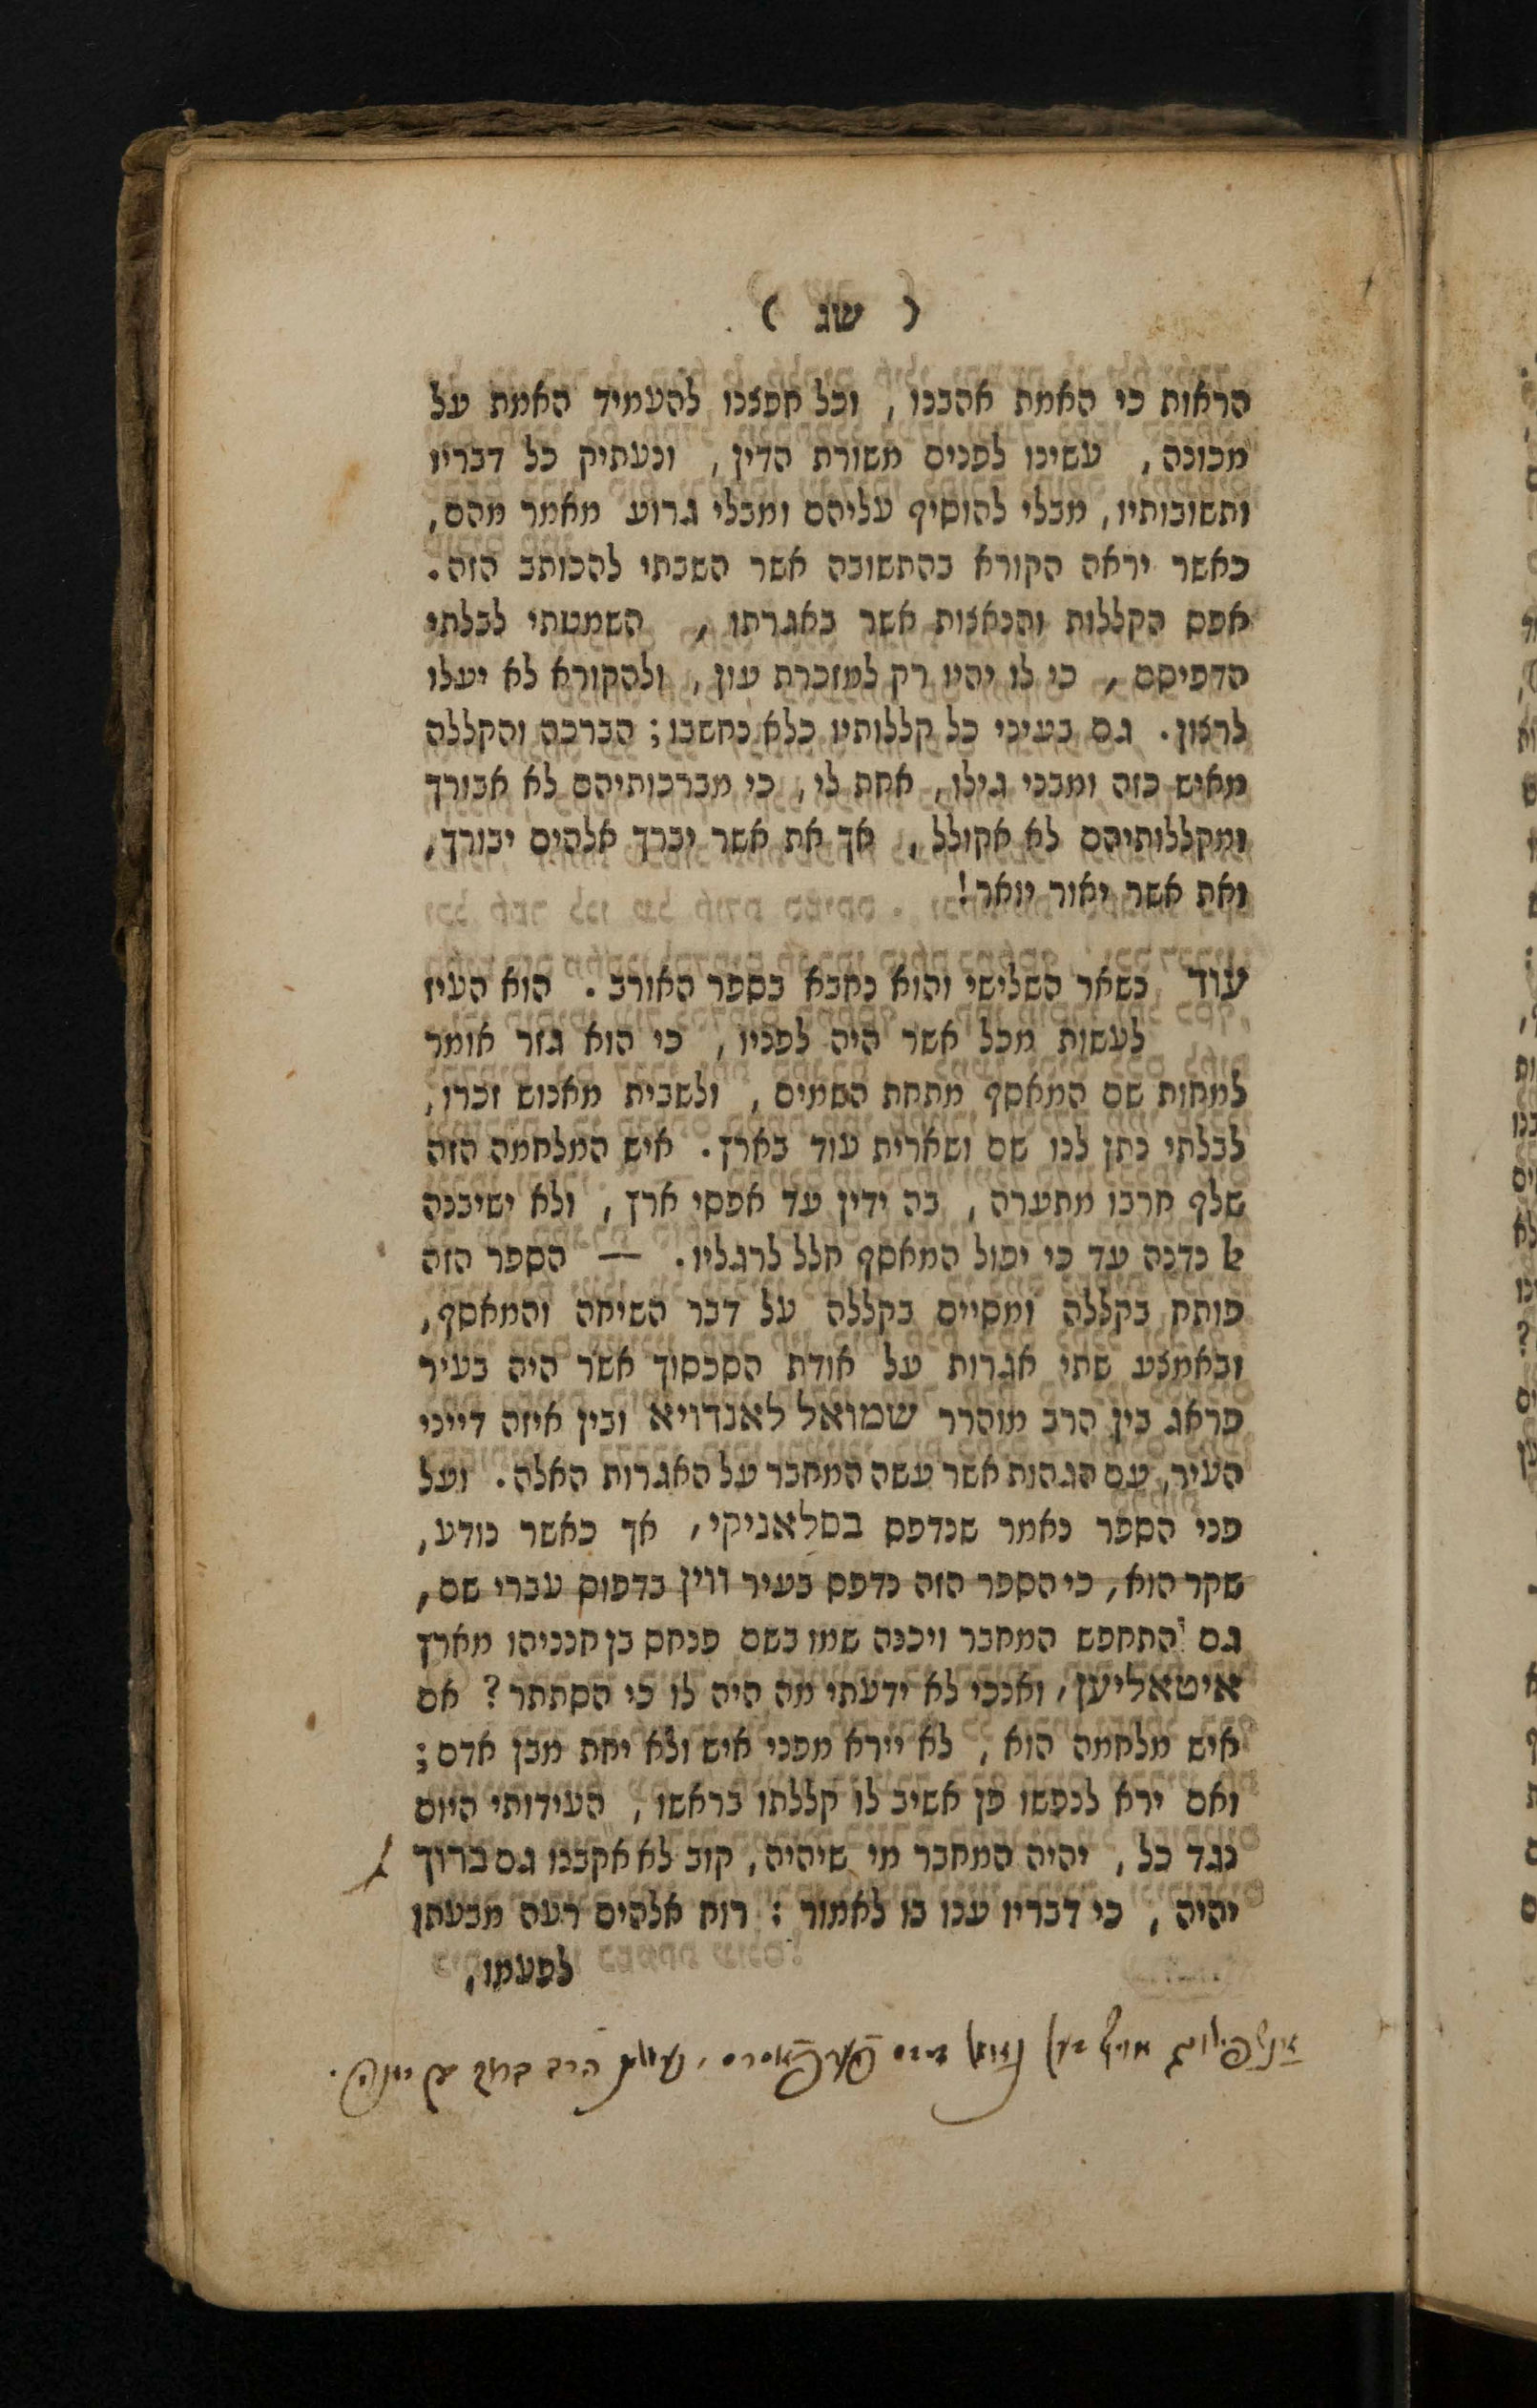 ( שג )
הראות כי האמת אהבנו , וכל חפצנו להעמיד האמת על
מכונה , עשינו לפנים משורת הדין , ונעתיק כל דבריו
ותשובותיו , מבלי להוסיף עליהם ומבלי גרוע מאמר מהם ,
כאשר יראה הקורא בהתשובה אשר השבתי להכותב הזה .
אפס הקללות והנאצות אשר באגרתו , השמטתי לבלתי
הדפיסם , כי לו יהיו רק למזכרת עון , ולהקורא לא יעלו
לרצון . גם בעיני כל קללותיו כלא נחשבו ; הברכה והקללה
מאיש כזה ומבני גילו , אחת לי , כי מברכותיהם לא אבורך
ומקללותיהם לא אקולל , אך את אשר יברך אלהים יבורך ,
ואת אשר יאור יואר !
עוד נשאר השלישי והוא נחבא בספר האורב . הוא העיז
לעשות מכל אשר היה לפניו , כי הוא גזר אומר
למחות שם המאסף מתחת השמים , ולשבית מאנוש זכרו ,
לבלתי נתן לנו שם ושארית עוד בארץ . איש המלחמה הזה
שלף חרבו מתערה , בה ידין עד אפסי ארץ , ולא ישיבנה
אל נדנה עד כי יפול המאסף חלל לרגליו . — הספר הזה
פותח בקללה ומסיים בקללה על דבר השיחה והמאסף ,
ובאמצע שתי אגרות על אודת הסכסוך אשר היה בעיר
פראג בין הרב מוהרר שמואל לאנדויא ובין איזה דייני
העיר , עם הגהות אשר עשה המחבר על האגרות האלה . ועל
פני הספר נאמר שנדפס בסלאניקי , אך כאשר נודע ,
שקר הוא , כי הספר הזה נדפס בעיר ווין בדפוס עברי שם ,
גם התחפש המחבר ויכנה שמו בשם פנחס בן חנניהו מארץ
איטאליען , ואנכי לא ידעתי מה היה לו כי הסתתר ? אם
איש מלחמה הוא , לא יירא מפני איש ולא יחת מבן אדם ;
ואם ירא לנפשו פן אשיב לו קללתו בראשו , העידותי היום
נגד כל , יהיה המחבר מי שיהיה , קוב לא אקבנו גם ברוך
יהיה , כי דבריו ענו בו לאמור : רוח אלהים רעה מבעתו
לפעמו ,